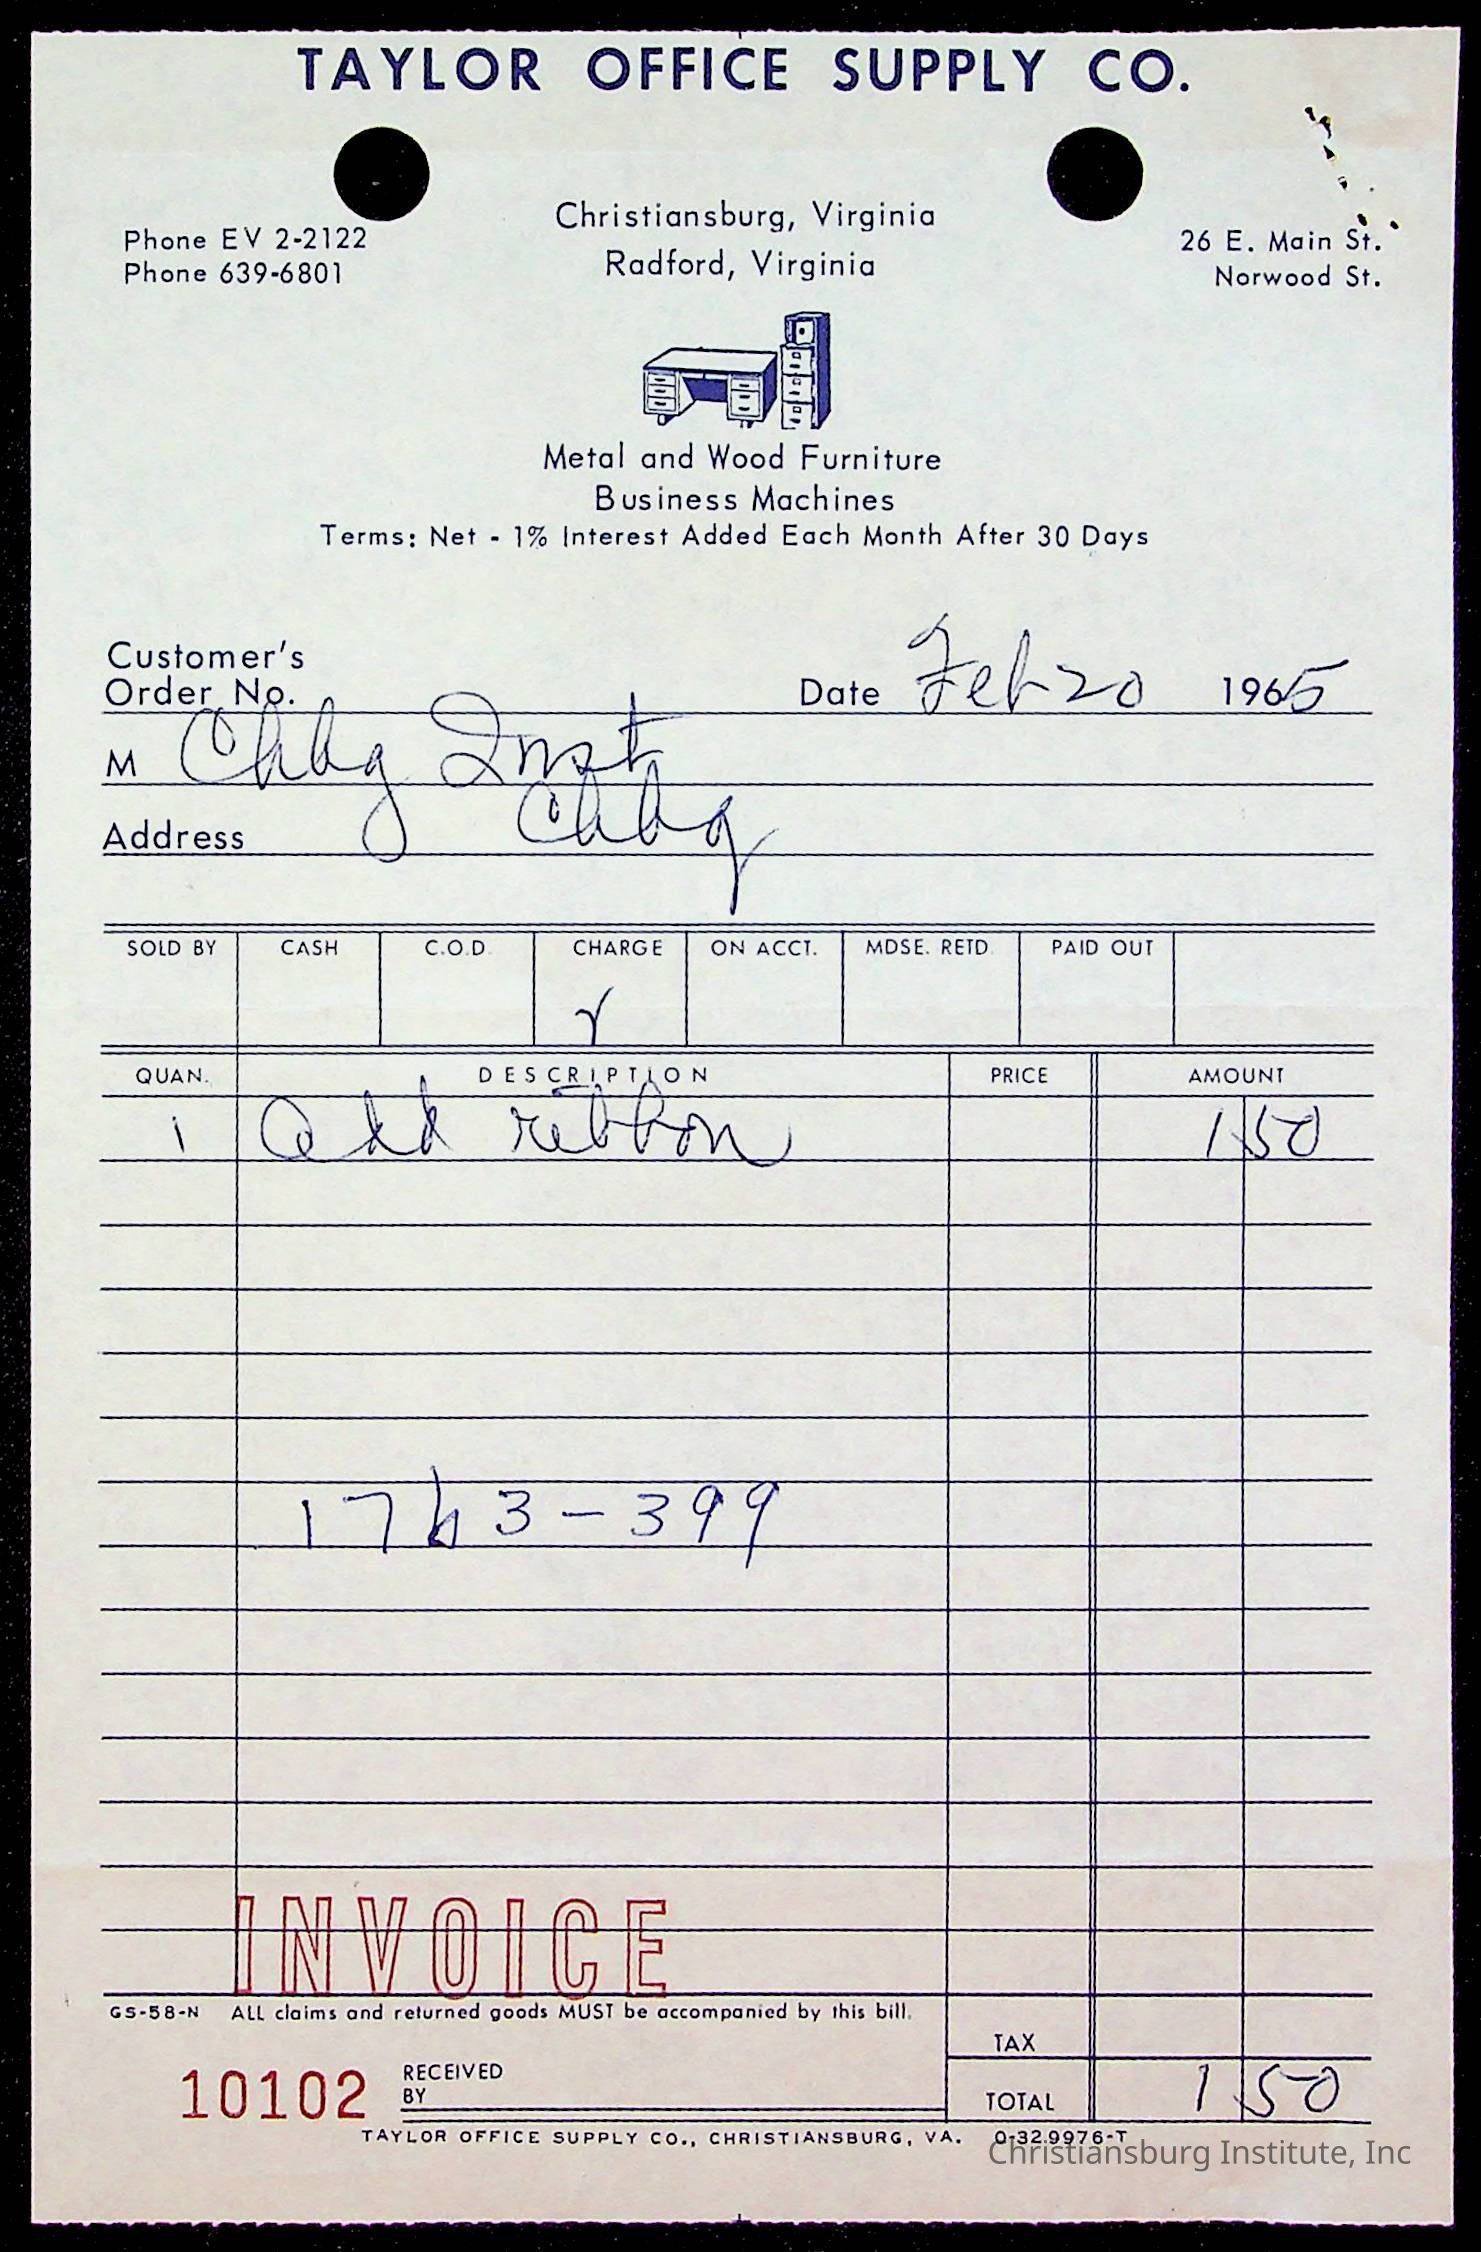 TAYLOR OFFICE SUPPLY CO.
Phone EV 2-2122
Phone 639-6801
Christiansburg, Virginia
Radford, Virginia
26 E. Main St.
Norwood St.
Metal and Wood Furniture
Business Machines
Terms: Net - 1% Interest Added Each Month After 30 Days
Customer's
Order No.
Date Feb 20 1965
M Chbg Inst
Address Chbg
SOLD BY CASH C.O.D. CHARGE ON ACCT. MDSE. RETD. PAID OUT
QUAN. DESCRIPTION PRICE AMOUNT
1 Add ribbon 1 50
1763-399
INVOICE
GS-58-N ALL claims and returned goods MUST be accompanied by this bill.
TAX
10102 RECEIVED
BY
TOTAL 1 50
TAYLOR OFFICE SUPPLY CO., CHRISTIANSBURG, VA. O-32.9976-T
Christiansburg Institute, Inc